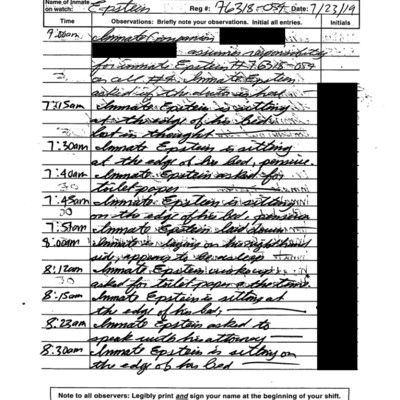 Name of Inmate
on watch: Epstein Reg #: 76318-054 Date: 7/23/19
Time Observations: Briefly note your observations. Initial all entries. Initials
Inmate Companion
assumes responsibility
for inmate Epstein # 76318-054
Inmate Epstein
asked
7:15am Inmate Epstein is sitting
at the edge of his bed,
lost in thought
7:30am Inmate Epstein is sitting
at the edge of his bed, pensive.
7:40am Inmate Epstein asked for
toilet paper
7:45am Inmate Epstein is sitting
on the edge of his bed, pensive
7:51am Inmate Epstein laid down
8:00am Inmate is laying on his right hand
side, appears to be asleep
8:12am Inmate Epstein woke up
asked for toilet paper
8:15am Inmate Epstein is sitting at
the edge of his bed,
8:23am Inmate Epstein asked to
speak with his attorney
8:30am Inmate Epstein is sitting on
the edge of his bed
Note to all observers: Legibly print and sign your name at the beginning of your shift.